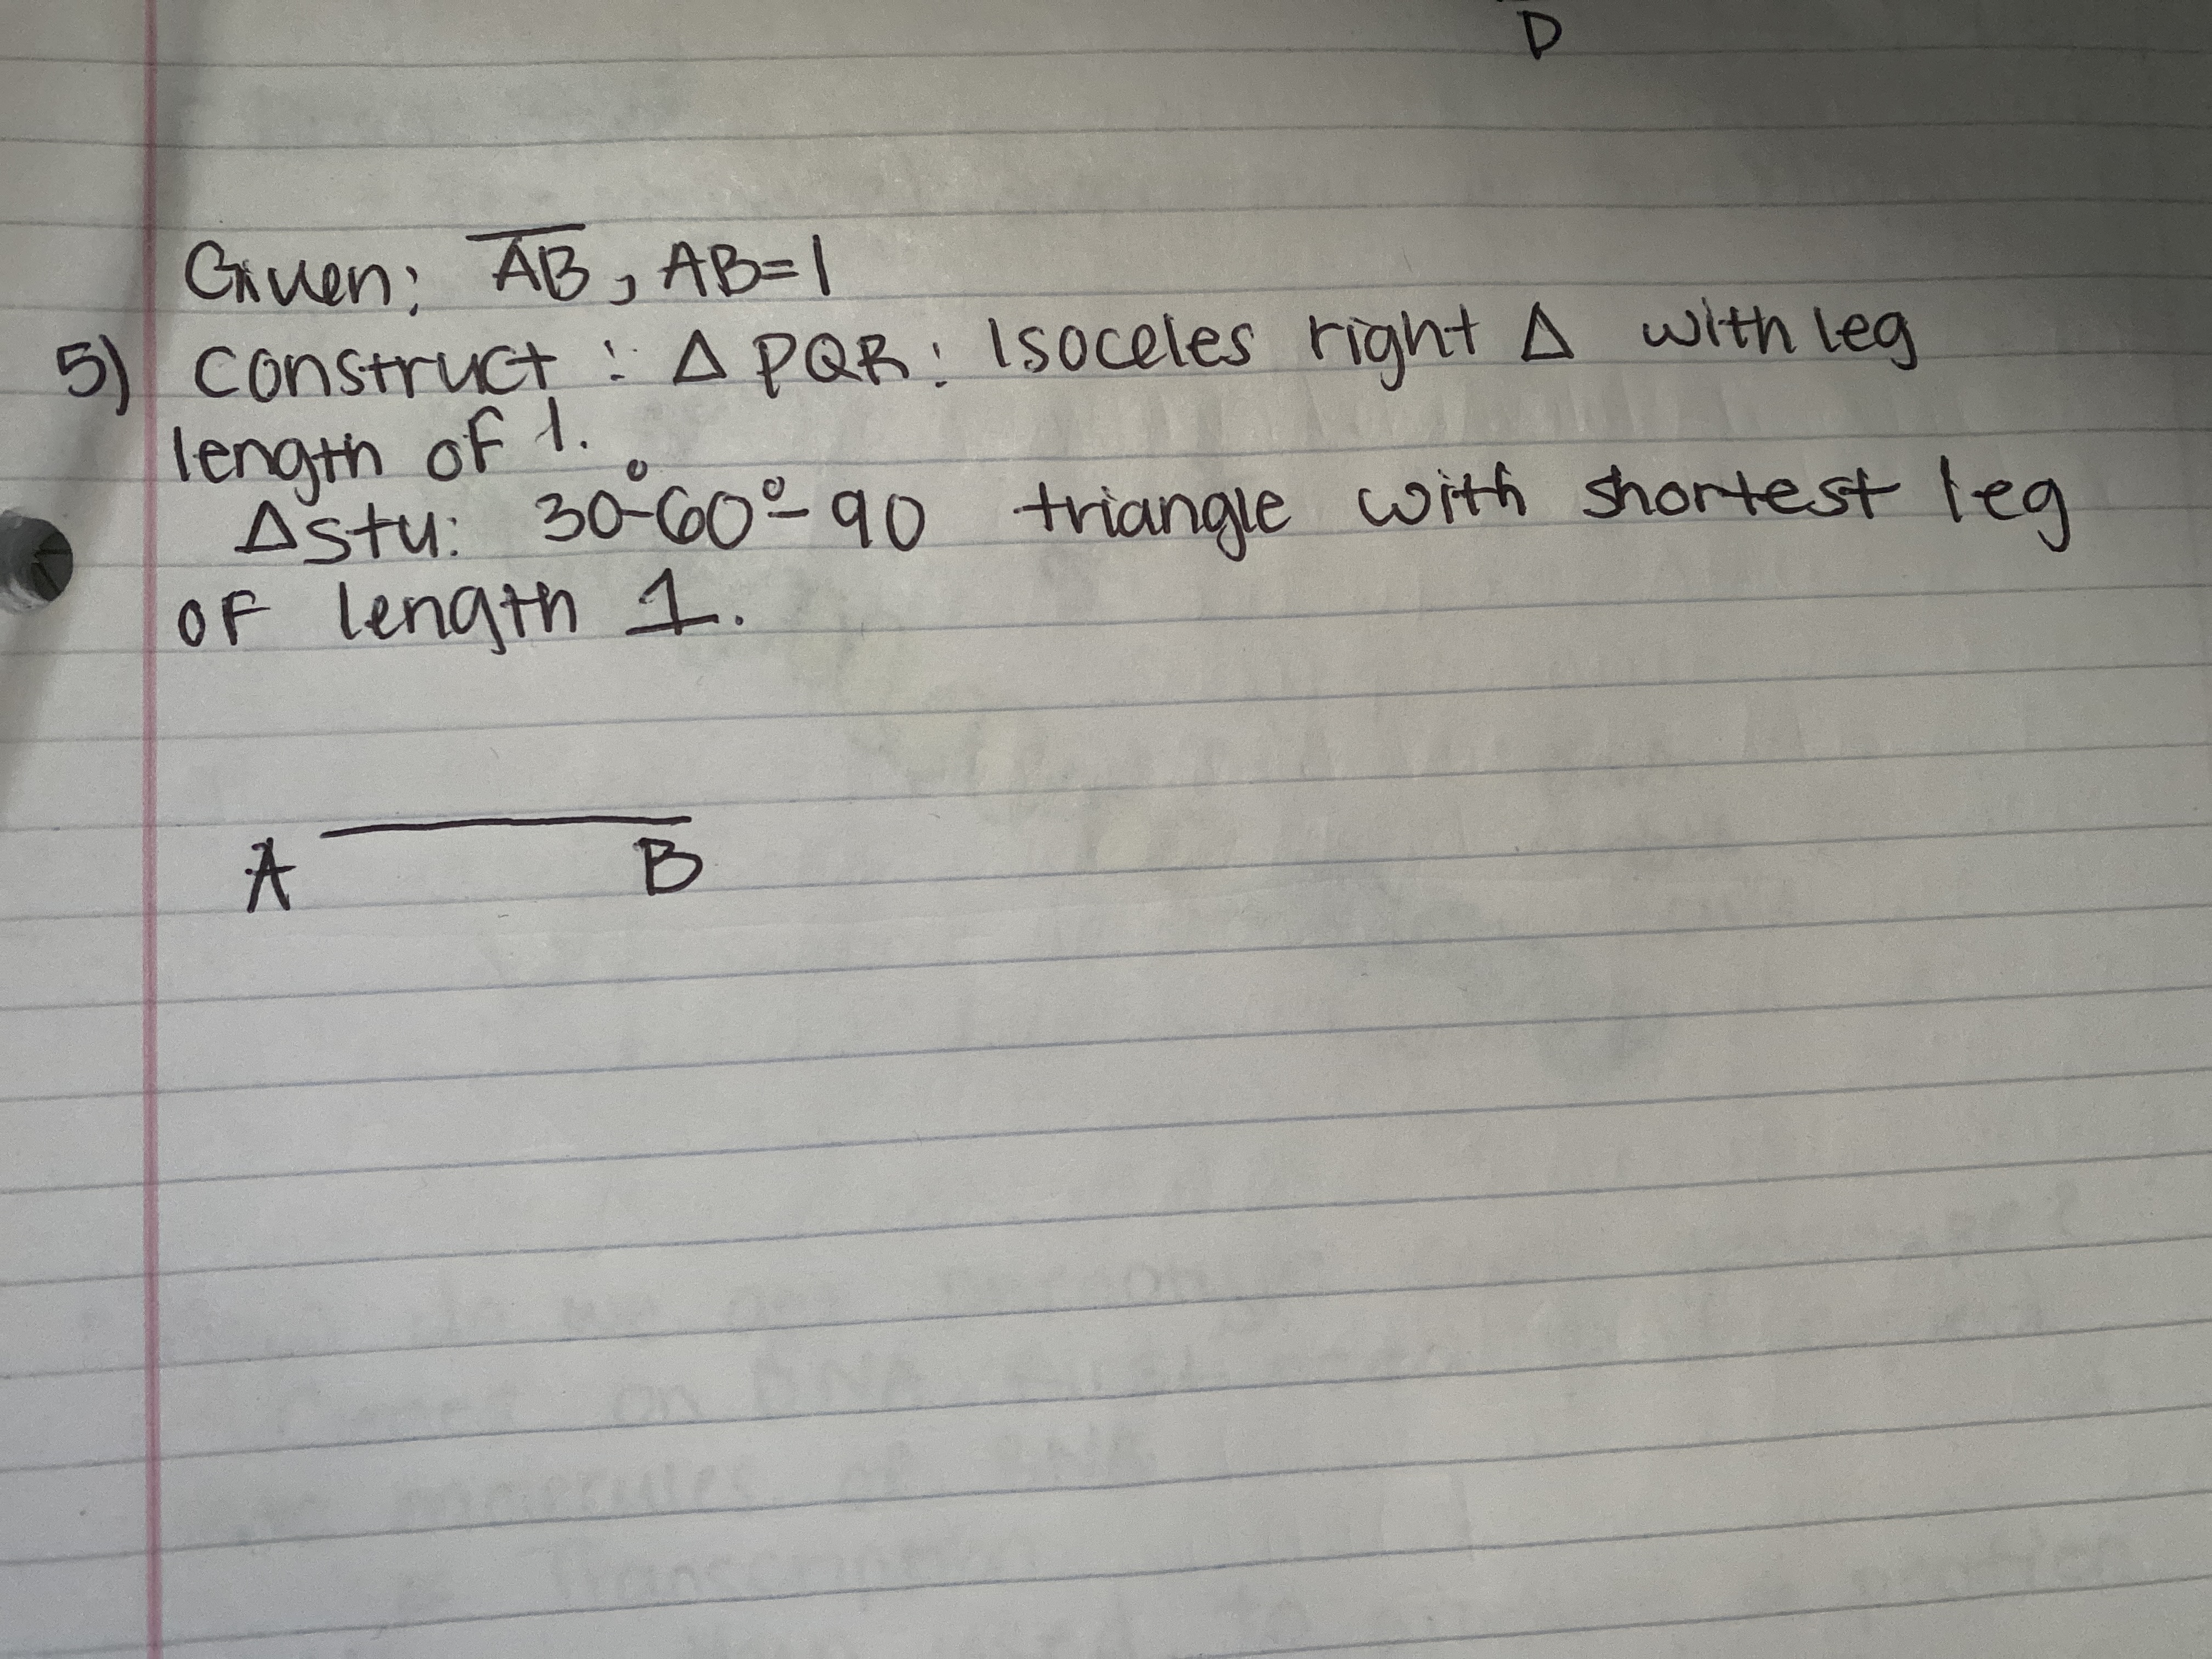 Given: AB, AB=1
5) Construct: Δ PQR: Isoceles right Δ with leg
length of 1.
ΔStu: 30-60°-90 triangle with shortest leg
of length 1.
A B
D